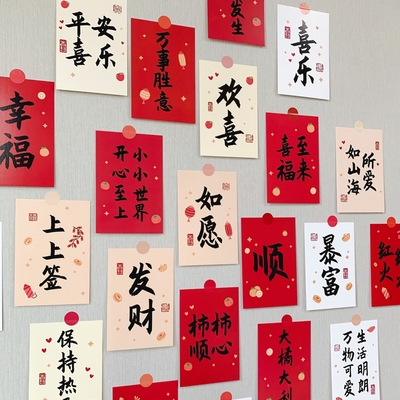 平安
喜乐
万事胜意
发生
喜乐
幸福
小小世界
开心至上
欢喜
喜至
福来
所爱
如山海
上上签
发财
如愿
顺
暴富
红
火
保持热
柿柿
顺心
大橘大利
生活明朗
万物可爱